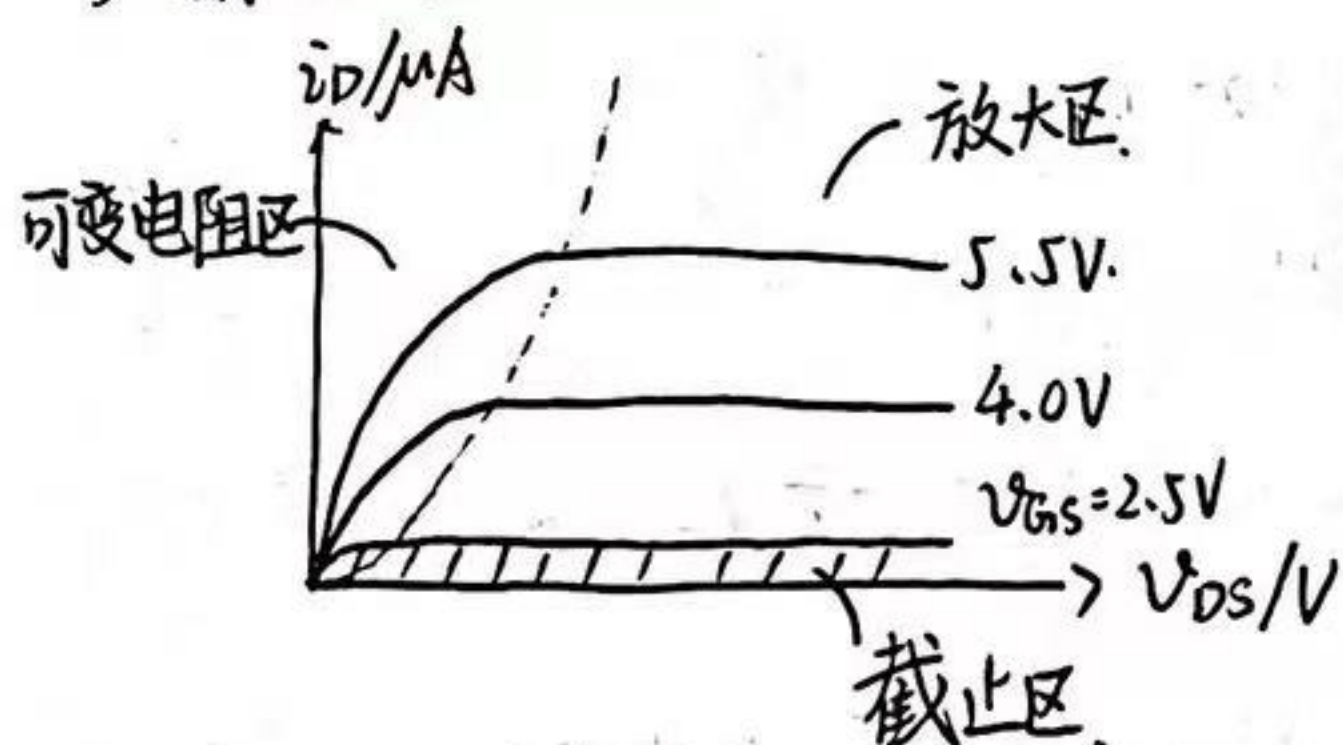 iD/μA
放大区.
可变电阻区
5.5V.
4.0V
VGS=2.5V
VDS/V
截止区